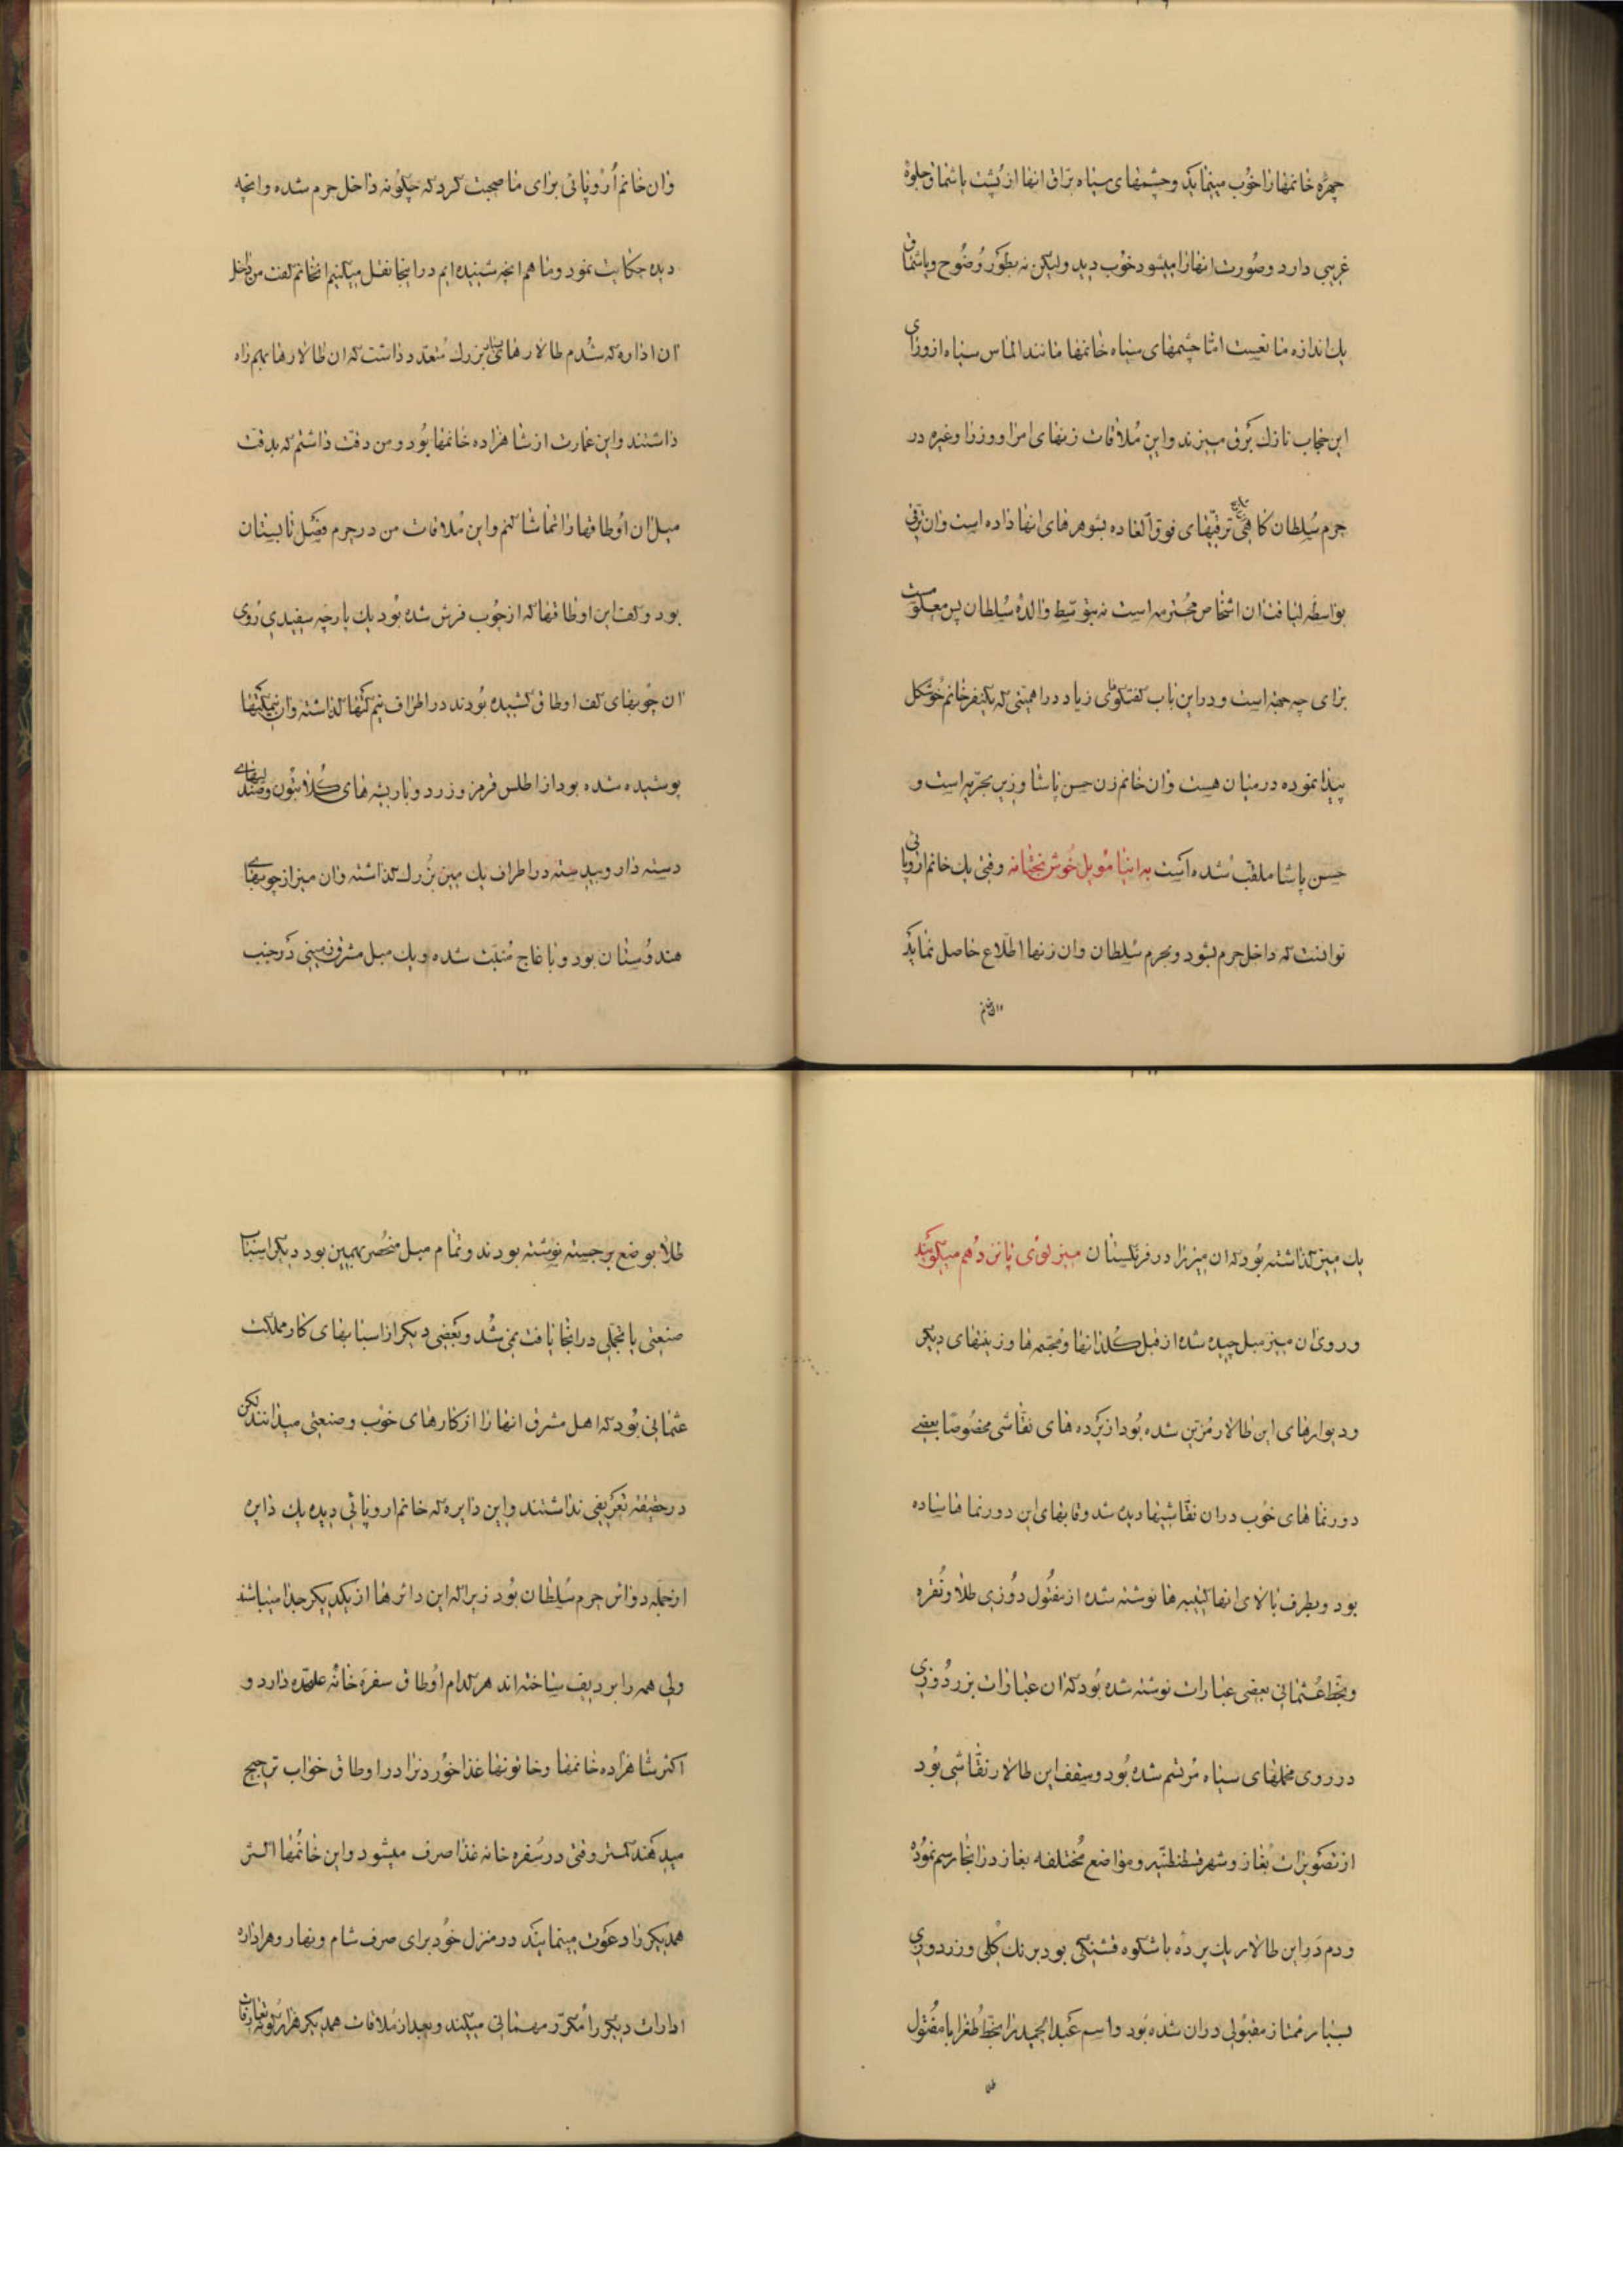 چهره خانمها را خوب مینماید و چشمهای سیاه براق انها از پشت یاشماق جلوهٔ
غریبی دارد و صورت انها را میشود خوب دید ولیکن نه بطور وضوح و یاشماق
یک اندازه مانعست اما چشمهای سیاه خانمها مانند الماس سیاه از ورای
این حجاب نازک برق میزند و این ملاقات زنهای امرا و وزرا و غیره در
حرم سلطان کاهی ترقیهای فوق العاده بشوهرهای انها داده است و ان ترقی
بواسطه لیاقت ان اشخاص محترمه است نه بتوسط والدهٔ سلطان پس معلومست
برای چه جهة است و در این باب کفتکوی زیاد در اهمیتی که یکنفر خانم خوشکل
پیدا نموده در میان هست و ان خانم زن حسن پاشا وزیر بحریه است و
حسن پاشا ملقب شده است به اینامویل خوش بختانه وقتی یک خانم اروپائی
توانست که داخل حرم بشود و بحرم سلطان و ان زنها اطلاع حاصل نماید
وان خانم
وان خانم اروپائی برای ما صحبت کرد که چکونه داخل حرم شده و انچه
دیده حکایت نمود و ما هم انچه شنیده ایم در اینجا نقل میکنیم انخانم کفت من داخل
ان اداره که شدم طالارهای بسیار بزرک متعدد داشت که ان طالارها بهم راه
داشتند و این عمارت از شاهزاده خانمها بود و من دقت داشتم که بدقت
مبل ان اوطاقها را تماشا کنم و این ملاقات من در حرم فصل تابستان
بود و کف این اوطاقها که از چوب فرش شده بود یک پارچه سفیدی روی
ان چوبهای کف اوطاق کشیده بودند در اطراف نیمکتها کذاشته و ان نیمکتها
پوشیده شده بود از اطلس قرمز و زرد و با ریشه های کلابتون و صندلیهای
دسته دار و بیدسته در اطراف یک میز بزرک کذاشته و ان میز از چوبهای
هندوستان بود و با عاج منبت شده و یک مبل مشرق زمینی در جنب
یک میز کذاشته بود که ان میز را در فرنکستان میز لوی پانزدهم میکویند
و روی ان میز مبل چیده شده از قبل کلدانها و مجتمه ها و زینتهای دیکر
و دیوارهای این طالار مزین شده بود از پرده های نقاشی مخصوصا بعضی
دورنماهای خوب در ان نقاشیها دیده شد و قابهای این دورنماها ساده
بود و بطرف بالای انها کتیبه ها نوشته شده از مفتول دوزی طلا و نقره
و بخط عثمانی بعضی عبارات نوشته شده بود که ان عبارات بزر دوزی
در روی مخملهای سیاه مرتسم شده بود و سقف این طالار نقاشی بود
از تصویرات بغاز و شهر قسطنطنیه و مواضع مختلفه بغاز در انجا رسم نموده
و دم در این طالار یک پرده با شکوه قشنکی بود برنک کلی و زردوزی
بسیار ممتاز مقبولی در ان شده بود و اسم عبدالحمید را بخط طغرا با مفتول
طلا
طلا بوضع برجسته نوشته بودند و تمام مبل منحصر بهمین بود دیکر اسباب
صنعتی یا تجملی در انجا یافت نمی شد و بعضی دیکر از اسبابهای کار مملکت
عثمانی بود که اهل مشرق انها را از کارهای خوب و صنعتی میدانند لکن
در حقیقه تعریفی نداشتند و این دایره که خانم اروپائی دیده یک دایره
از جمله دوائر حرم سلطان بود زیرا که این دائرها از یکدیکر جدا میباشد
ولی همه را بر ردیف ساخته اند هر کدام اوطاق سفره خانه علیحده دارد و
اکثر شاهزاده خانمها و خاتونها غذا خوردنرا در اوطاق خواب ترجیح
میدهند کمتر وقتی در سفره خانه غذا صرف میشود و این خانمها اکثر
همدیکر را دعوت مینمایند در منزل خود برای صرف شام و نهار و هر اداره
ادارات دیکر را مکرر مهمانی میکند و بعد از ملاقات همدیکر هزار کونه تعارفات